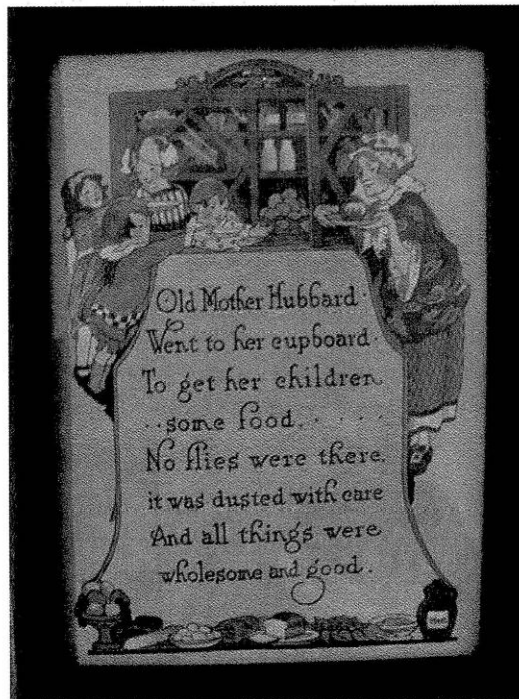 Old Mother Hubbard
Went to her cupboard
To get her children
some food.
No flies were there,
it was dusted with care
And all things were
wholesome and good.